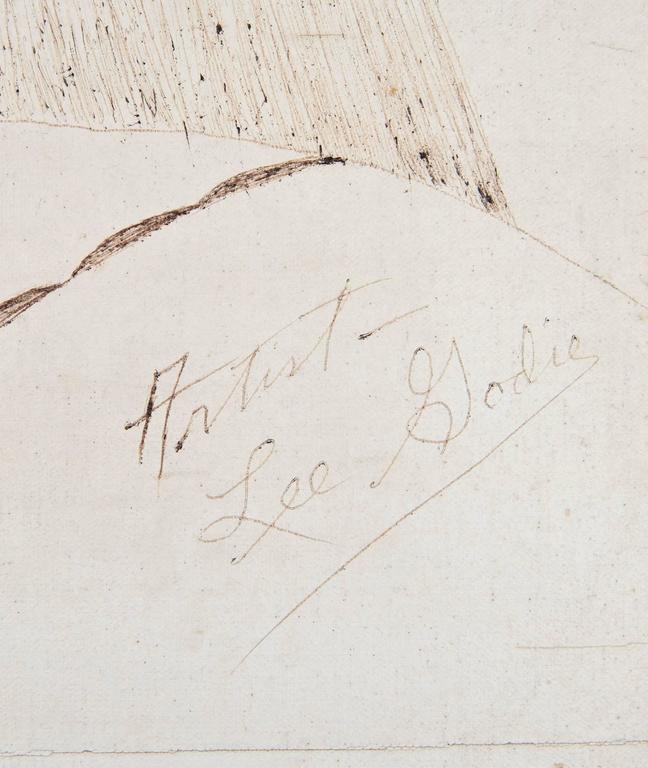 Artist -
Lee Godie